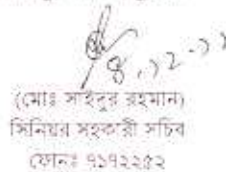 ৪.১২.১১
(মোঃ সাইদুর রহমান)
সিনিয়র সহকারী সচিব
ফোনঃ ৭১৭২২৫২